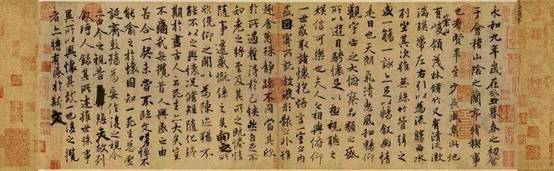 永和九年歲在癸丑暮春之初會
于會稽山陰之蘭亭脩稧事
也群賢畢至少長咸集此地
有崇山峻領茂林脩竹又有清流激
湍暎帶左右引以為流觴曲水
列坐其次雖無絲竹管弦之
盛一觴一詠亦足以暢敘幽情
是日也天朗氣清惠風和暢仰
觀宇宙之大俯察品類之盛
所以遊目騁懷足以極視聽之
娛信可樂也夫人之相與俯仰
一世或取諸懷抱悟言一室之內
或因寄所託放浪形骸之外雖
趣舍萬殊靜躁不同當其欣
於所遇蹔得於己快然自足不
知老之將至及其所之既惓情
隨事遷感慨係之矣向之所
欣俛仰之閒以為陳迹猶不
能不以之興懷況脩短隨化終
期於盡古人云死生亦大矣豈
不痛哉每攬昔人興感之由
若合一契未嘗不臨文嗟悼不
能喻之於懷固知一死生為虛
誕齊彭殤為妄作後之視今
亦由今之視昔悲夫故列
敘時人錄其所述雖世殊事
異所以興懷其致一也後之攬
者亦將有感於斯文